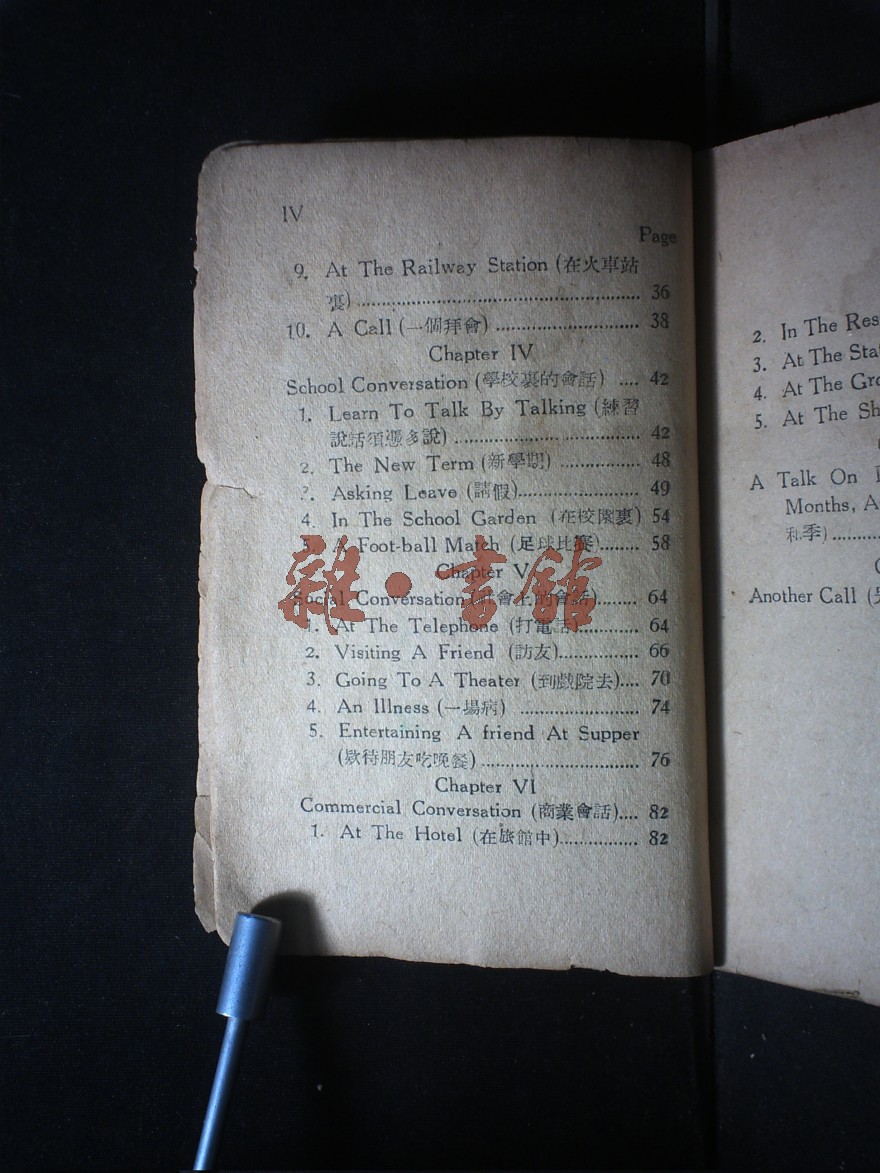 IV
Page
9. At The Railway Station (在火車站
裏) 36
10. A Call (一個拜會) 38
Chapter IV
School Conversation (學校裏的會話) 42
1. Learn To Talk By Talking (練習
說話須憑多說) 42
2. The New Term (新學期) 48
Asking Leave (請假) 49
4. In The School Garden (在校園裏) 54
5. A Foot-ball Match (足球比賽) 58
Chapter V
Social Conversation (社會上的會話) 64
1. At The Telephone (打電話) 64
2. Visiting A Friend (訪友) 66
3. Going To A Theater (到戲院去) 70
4. An Illness (一場病) 74
5. Entertaining A friend At Supper
(欵待朋友吃晚餐) 76
Chapter VI
Commercial Conversation (商業會話) 82
1. At The Hotel (在旅館中) 82
雜·書館
2. In The Res
3. At The Sta
4. At The Gro
5. At The Sh
A Talk On
Months, A
和季)
Another Call